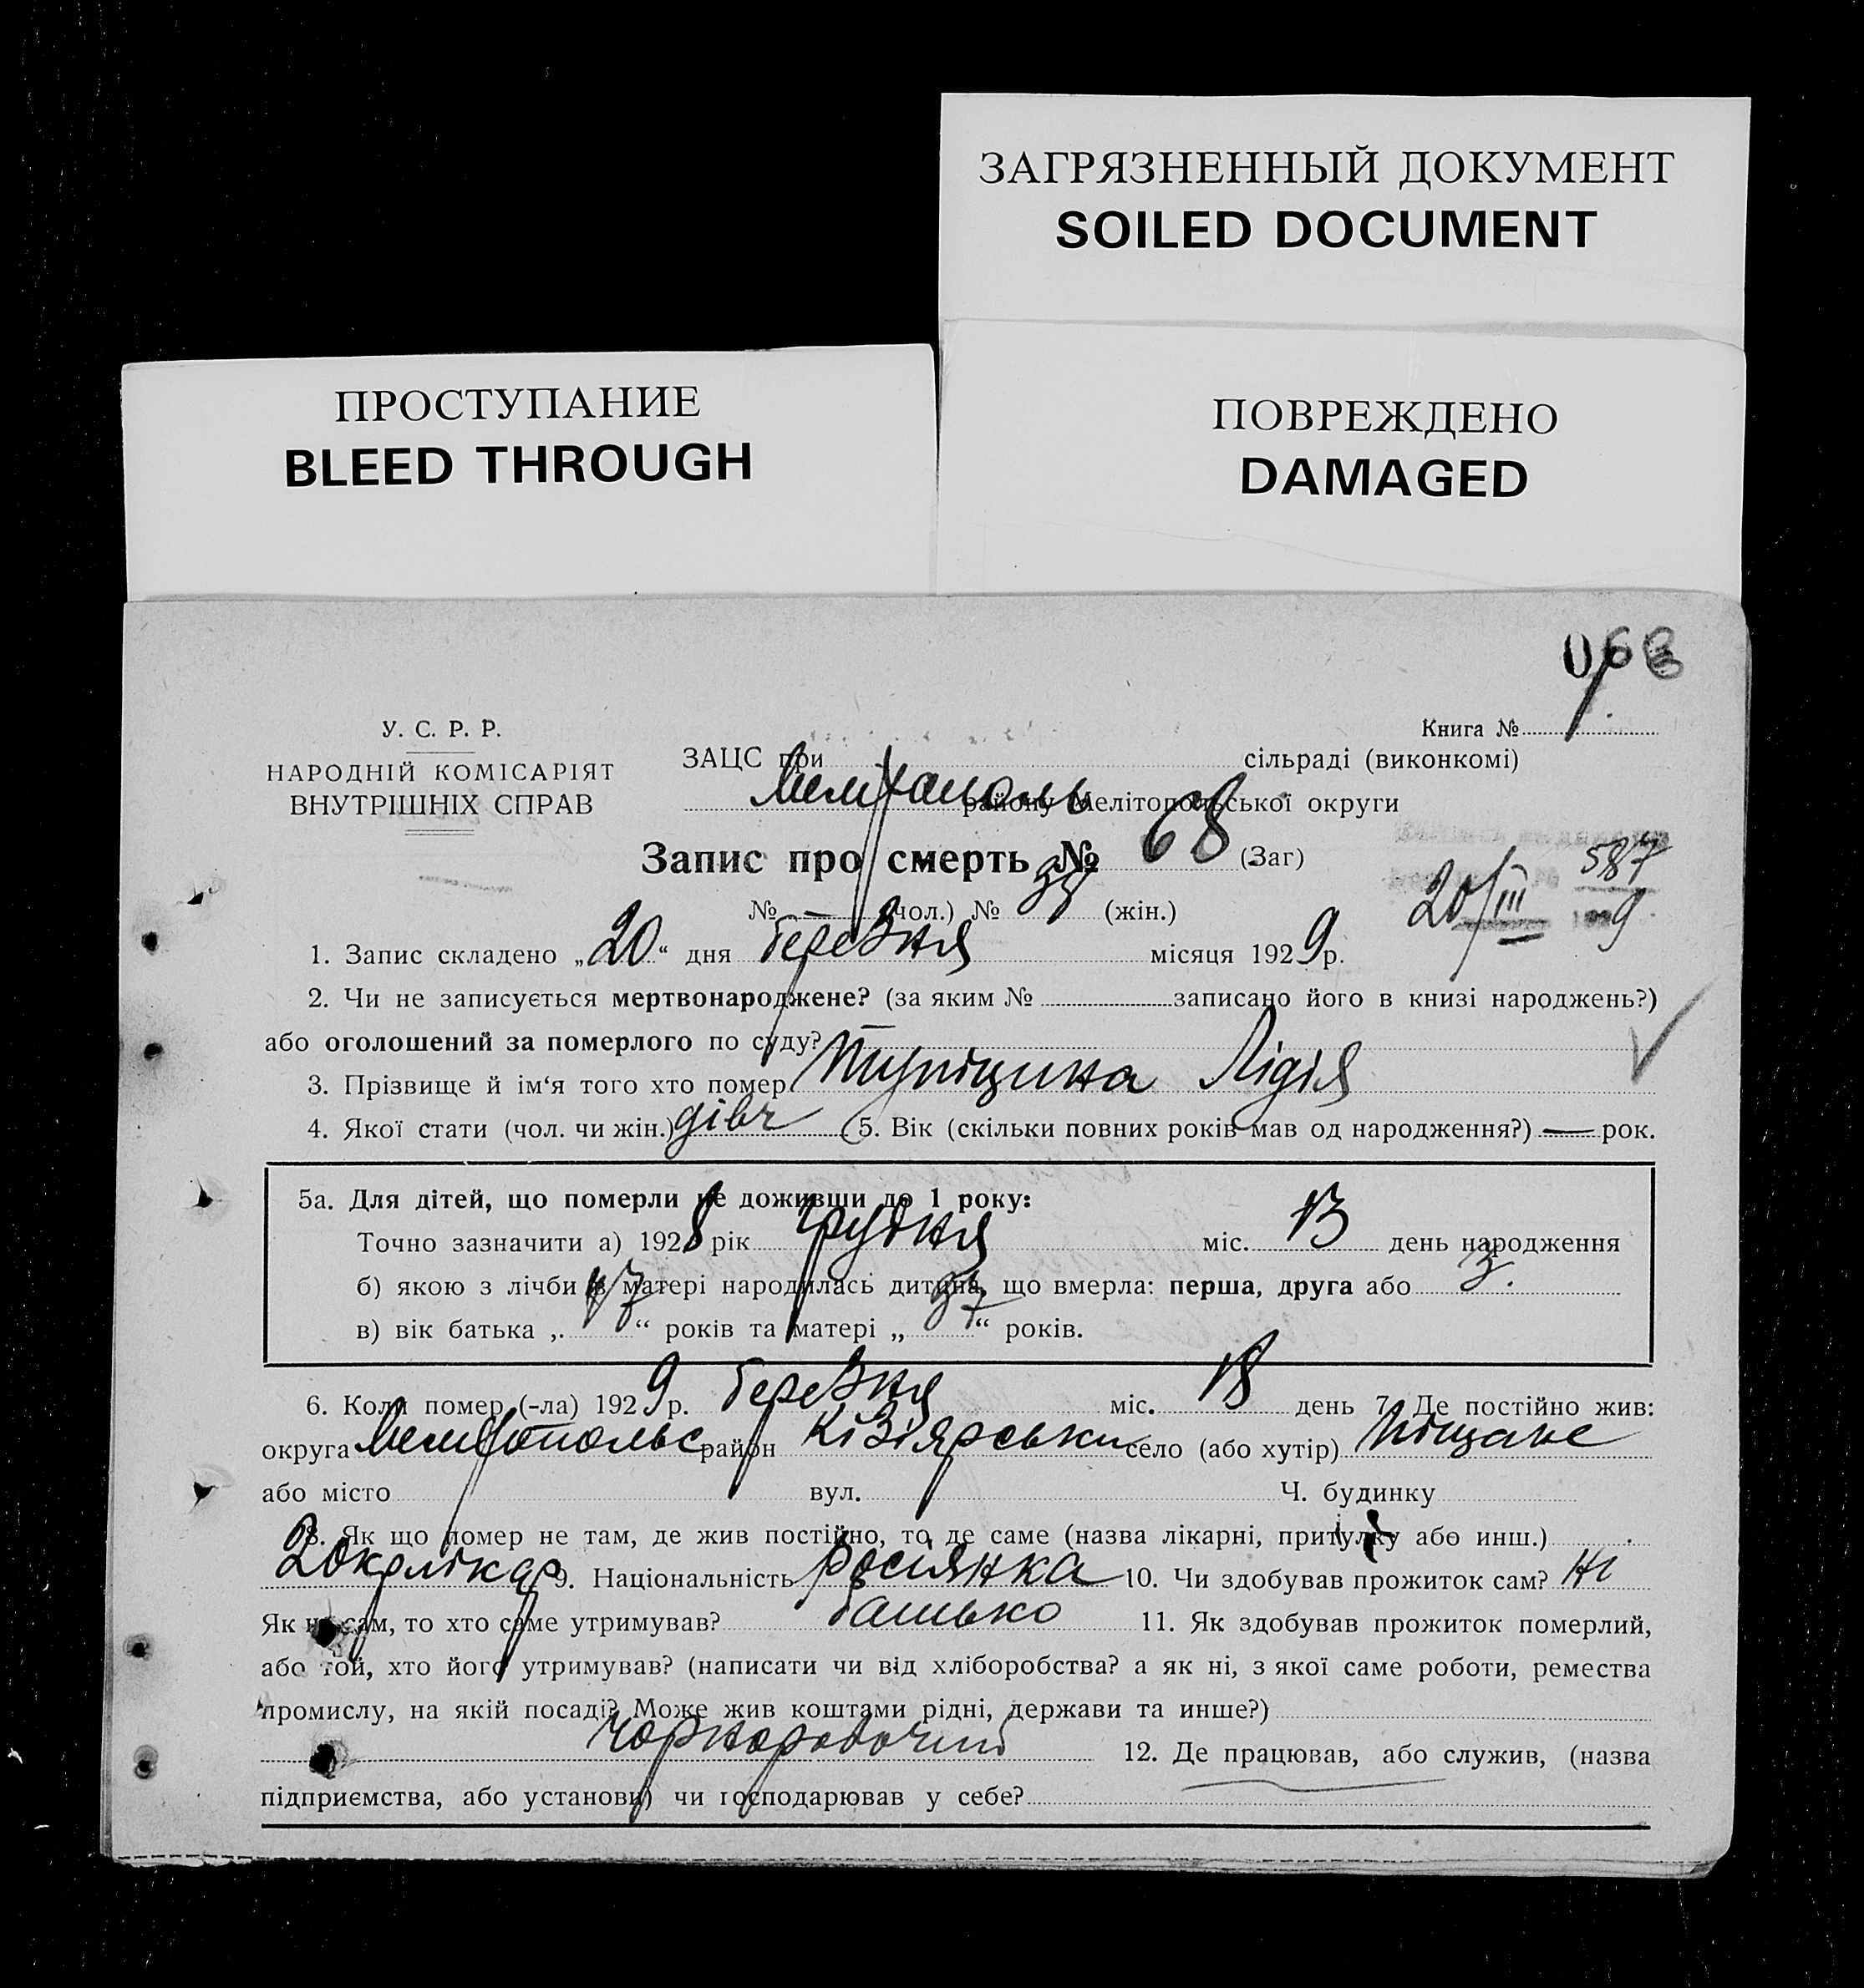 ЗАГРЯЗНЕННЫЙ ДОКУМЕНТ
SOILED DOCUMENT
ПРОСТУПАНИЕ
BLEED THROUGH
ПОВРЕЖДЕНО
DAMAGED
068
У. С. Р. Р.
НАРОДНІЙ КОМІСАРІЯТ
ВНУТРІШНІХ СПРАВ
Книга № 1
ЗАЦС при сільраді (виконкомі)
району Мелітопольської округи
Запис про смерть № 68 (Заг)
№ — (чол.) № (жін.)
587
20/III 1929
1. Запис складено „20“ дня березня місяця 1929 р.
2. Чи не записується мертвонароджене? (за яким № записано його в книзі народжень?)
або оголошений за померлого по суду? —
3. Прізвище й ім‘я того хто помер Тупіцина Лідія
4. Якої стати (чол. чи жін.) дівч 5. Вік (скільки повних років мав од народження?) — рок.
5а. Для дітей, що померли не доживши до 1 року:
Точно зазначити а) 1928 рік грудня міс. 13 день народження
б) якою з лічби в матері народилась дитина, що вмерла: перша, друга або 3.
в) вік батька „ “ років та матері „37“ років.
6. Коли помер (-ла) 1929 р. березня міс. 18 день 7. Де постійно жив:
округа Мелітопольс район Кізіярськи село (або хутір) Піщане
або місто вул. Ч. будинку
8. Як що помер не там, де жив постійно, то де саме (назва лікарні, притулку або инш.)
2 Окрлікар 9. Національність росіянка 10. Чи здобував прожиток сам? ні
Як не сам, то хто саме утримував? батько 11. Як здобував прожиток померлий,
або той, хто його утримував? (написати чи від хліборобства? а як ні, з якої саме роботи, ремества
промислу, на якій посаді? Може жив коштами рідні, держави та инше?)
чорноробочий 12. Де працював, або служив, (назва
підприємства, або установи) чи господарював у себе?